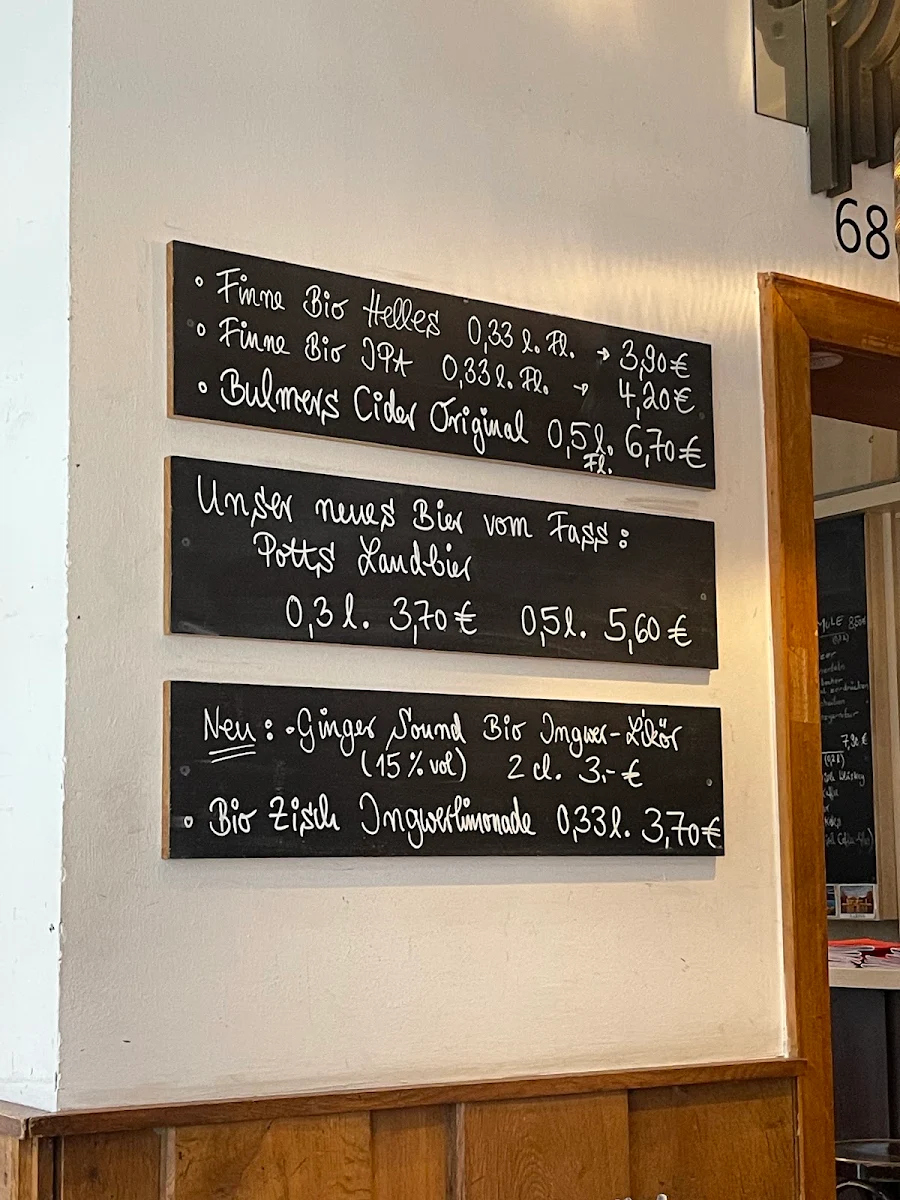 68
• Finne Bio Helles 0,33 l. Fl. → 3,90 €
• Finne Bio IPA 0,33 l. Fl. → 4,20 €
• Bulmers Cider Original 0,5 l. 6,70 €
Fl.
Unser neues Bier vom Fass:
Potts Landbier
0,3 l. 3,70 € 0,5 l. 5,60 €
Neu: • Ginger Sound Bio Ingwer-Likör
(15 % vol) 2 cl. 3.- €
• Bio Zisch Ingwerlimonade 0,33 l. 3,70 €
MULE 8,50€
7,90 €